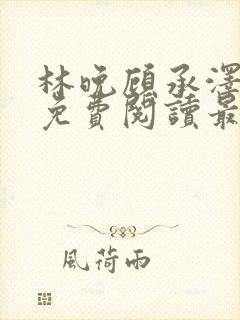 林晚顾承澤
免費閱讀最
風荷雨